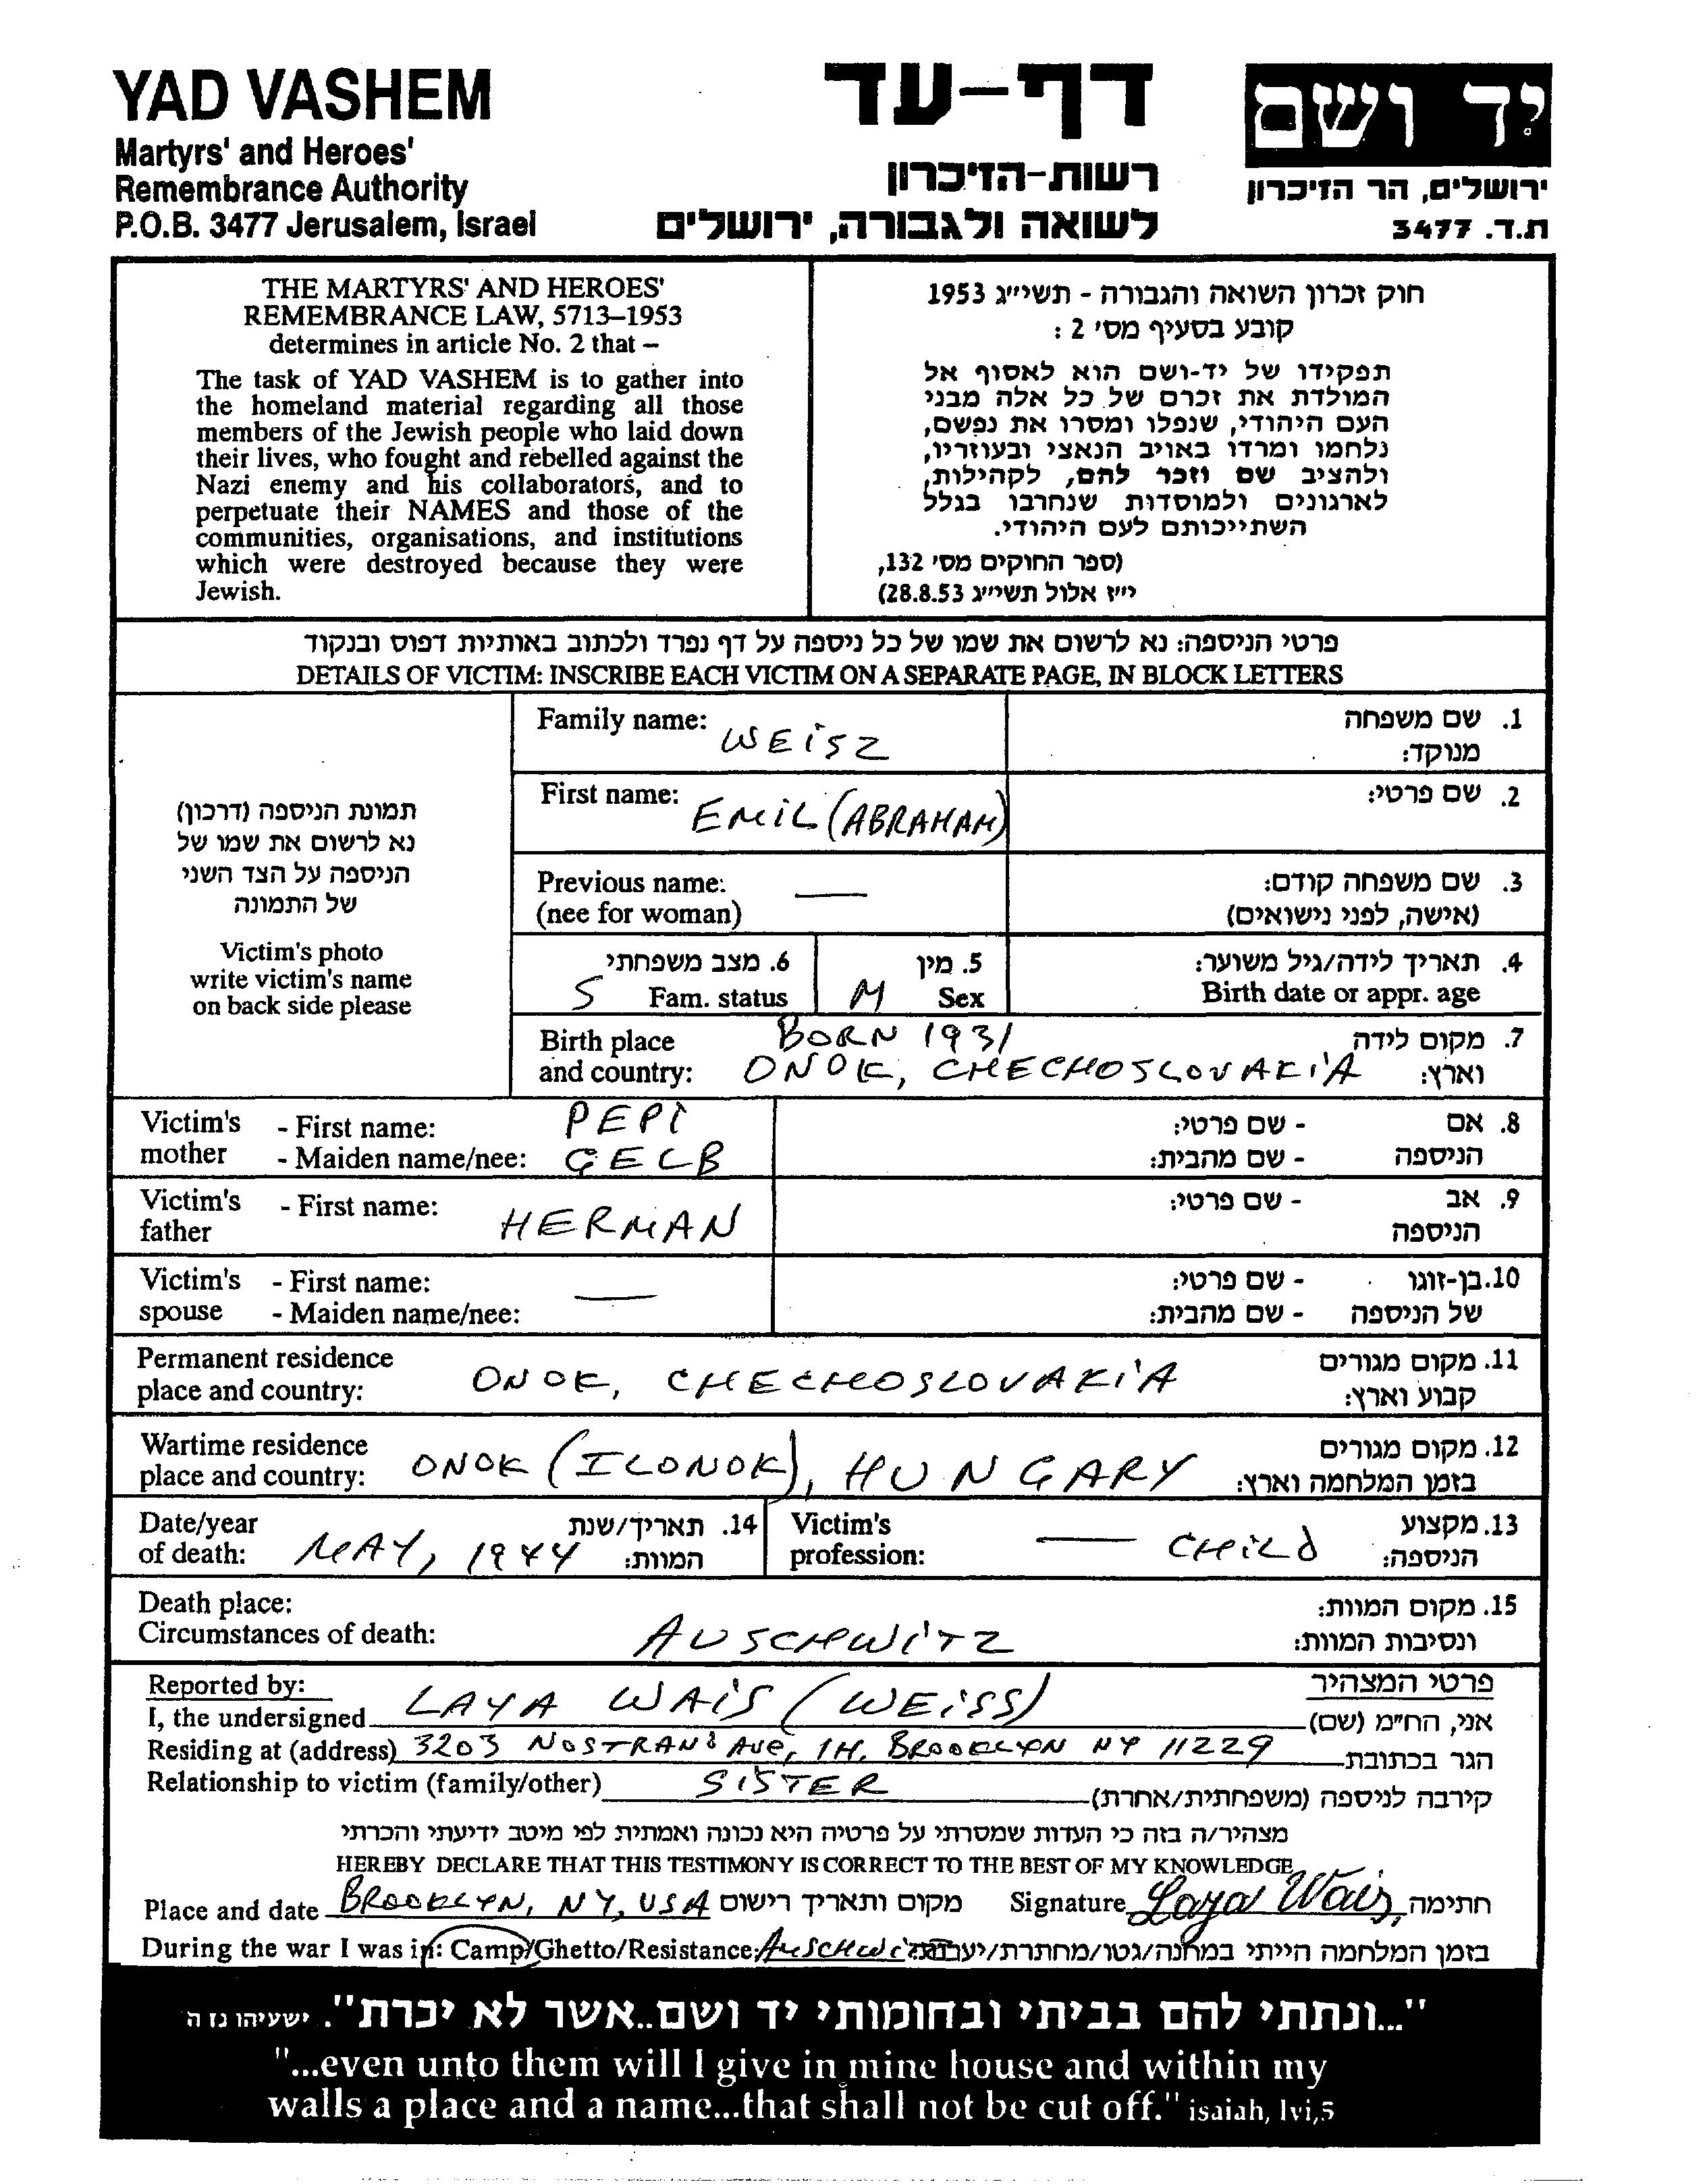 YAD VASHEM
Martyrs' and Heroes'
Remembrance Authority
P.O.B. 3477 Jerusalem, Israel
דף-עד
רשות-הזיכרון
לשואה ולגבורה, ירושלים
יד ושם
ירושלים, הר הזיכרון
ת.ד. 3477
THE MARTYRS' AND HEROES'
REMEMBRANCE LAW, 5713–1953
determines in article No. 2 that –
The task of YAD VASHEM is to gather into
the homeland material regarding all those
members of the Jewish people who laid down
their lives, who fought and rebelled against the
Nazi enemy and his collaborators, and to
perpetuate their NAMES and those of the
communities, organisations, and institutions
which were destroyed because they were
Jewish.
חוק זכרון השואה והגבורה - תשי״ג 1953
קובע בסעיף מס׳ 2 :
תפקידו של יד-ושם הוא לאסוף אל
המולדת את זכרם של כל אלה מבני
העם היהודי, שנפלו ומסרו את נפשם,
נלחמו ומרדו באויב הנאצי ובעוזריו,
ולהציב שם וזכר להם, לקהילות,
לארגונים ולמוסדות שנחרבו בגלל
השתייכותם לעם היהודי.
(ספר החוקים מס׳ 132,
י״ז אלול תשי״ג 28.8.53)
פרטי הניספה: נא לרשום את שמו של כל ניספה על דף נפרד ולכתוב באותיות דפוס ובנקוד
DETAILS OF VICTIM: INSCRIBE EACH VICTIM ON A SEPARATE PAGE, IN BLOCK LETTERS
תמונת הניספה (דרכון)
נא לרשום את שמו של
הניספה על הצד השני
של התמונה
Victim's photo
write victim's name
on back side please
Family name: WEISZ 1. שם משפחה
מנוקד:
First name: EMIL (ABRAHAM) 2. שם פרטי:
Previous name: — 3. שם משפחה קודם:
(nee for woman) (אישה, לפני נישואים)
6. מצב משפחתי 5. מין 4. תאריך לידה/גיל משוער:
S Fam. status M Sex Birth date or appr. age
Birth place BORN 1931 7. מקום לידה
and country: ONOK, CHECHOSLOVAKIA וארץ:
Victim's - First name: PEPI - שם פרטי: 8. אם
mother - Maiden name/nee: GELB - שם מהבית: הניספה
Victim's - First name: HERMAN - שם פרטי: 9. אב
father הניספה
Victim's - First name: — - שם פרטי: 10. בן-זוגו
spouse - Maiden name/nee: - שם מהבית: של הניספה
Permanent residence 11. מקום מגורים
place and country: ONOK, CHECHOSLOVAKIA קבוע וארץ:
Wartime residence 12. מקום מגורים
place and country: ONOK (ILONOK), HUNGARY בזמן המלחמה וארץ:
Date/year 14. תאריך/שנת Victim's 13. מקצוע
of death: MAY, 1944 המוות: profession: — CHILD הניספה:
Death place: 15. מקום המוות:
Circumstances of death: AUSCHWITZ ונסיבות המוות:
Reported by: פרטי המצהיר
I, the undersigned LAYA WAIS (WEISS) אני, הח״מ (שם)
Residing at (address) 3203 NOSTRAND AVE, 1H, BROOKLYN NY 11229 הגר בכתובת
Relationship to victim (family/other) SISTER קירבה לניספה (משפחתית/אחרת)
מצהיר/ה בזה כי העדות שמסרתי על פרטיה היא נכונה ואמתית לפי מיטב ידיעתי והכרתי
HEREBY DECLARE THAT THIS TESTIMONY IS CORRECT TO THE BEST OF MY KNOWLEDGE
Place and date BROOKLYN, NY, USA מקום ותאריך רישום Signature Laya Wais חתימה
During the war I was in: Camp/Ghetto/Resistance: AUSCHWITZ בזמן המלחמה הייתי במחנה/גטו/מחתרת/
"...ונתתי להם בביתי ובחומותי יד ושם..אשר לא יכרת". ישעיהו נז ה
"...even unto them will I give in mine house and within my
walls a place and a name...that shall not be cut off." isaiah, lvi,5